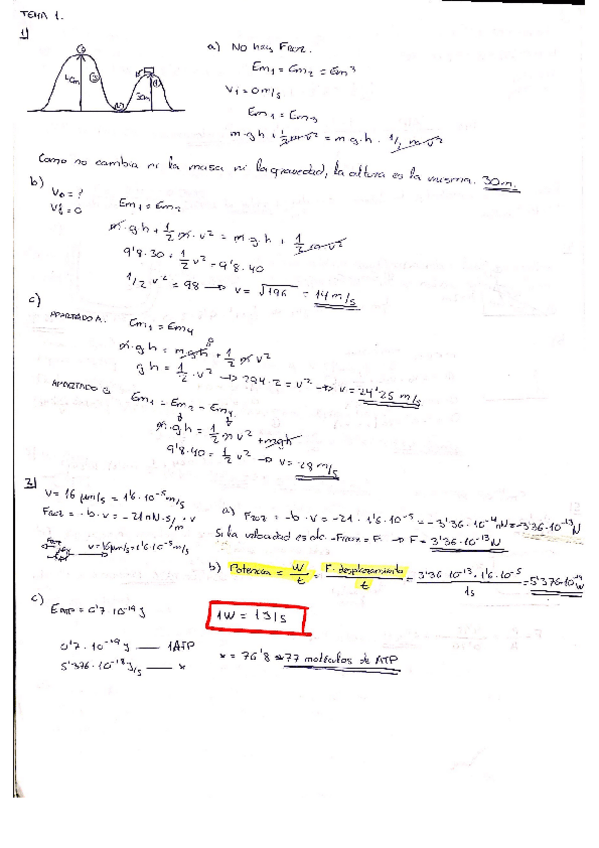 TEMA 1.
1)
a) No hay Froz.
Em1 = Em2 = Em3
40m
30m
Vi = 0 m/s
Em1 = Em3
m·g·h + 1/2 m v² = m·g·h · 1/2 m v²
Como no cambia ni la masa ni la gravedad, la altura es la misma. 30m.
b) Vo = ?
Vf = 0
Em1 = Em2
m·g·h + 1/2 m·v² = m·g·h + 1/2 m v²
9'8·30 + 1/2 v² = 9'8·40
1/2 v² = 98 → v = √196 = 14 m/s
c)
APARTADO A. Em1 = Em4
m·g·h = mgh + 1/2 m v²
gh = 1/2 · v² → 294·2 = v² → v = 24'25 m/s
APARTADO B. Em1 = Em2 = Em4
m·gh = 1/2 m v² + mgh
9'8·40 = 1/2 v² → v = 28 m/s
3)
v = 16 μm/s = 1'6·10⁻⁵ m/s
Froz = -b·v = -21 nN·s/m · v
a) Froz = -b·v = -21·1'6·10⁻⁵ = -3'36·10⁻⁴ nN = -3'36·10⁻¹³ N
Si la velocidad es cte. -Froz = F. → F = 3'36·10⁻¹³ N
Froz
v = 16 μm/s = 1'6·10⁻⁵ m/s
b) Potencia = W/t = F·desplazamiento/t = 3'36·10⁻¹³·1'6·10⁻⁵/1s = 5'376·10⁻¹⁸ W
c) EATP = 0'7·10⁻¹⁹ J
1W = 1J/s
0'7·10⁻¹⁹ J — 1ATP
5'376·10⁻¹⁸ J/s — x
x = 76'8 ≈ 77 moléculas de ATP